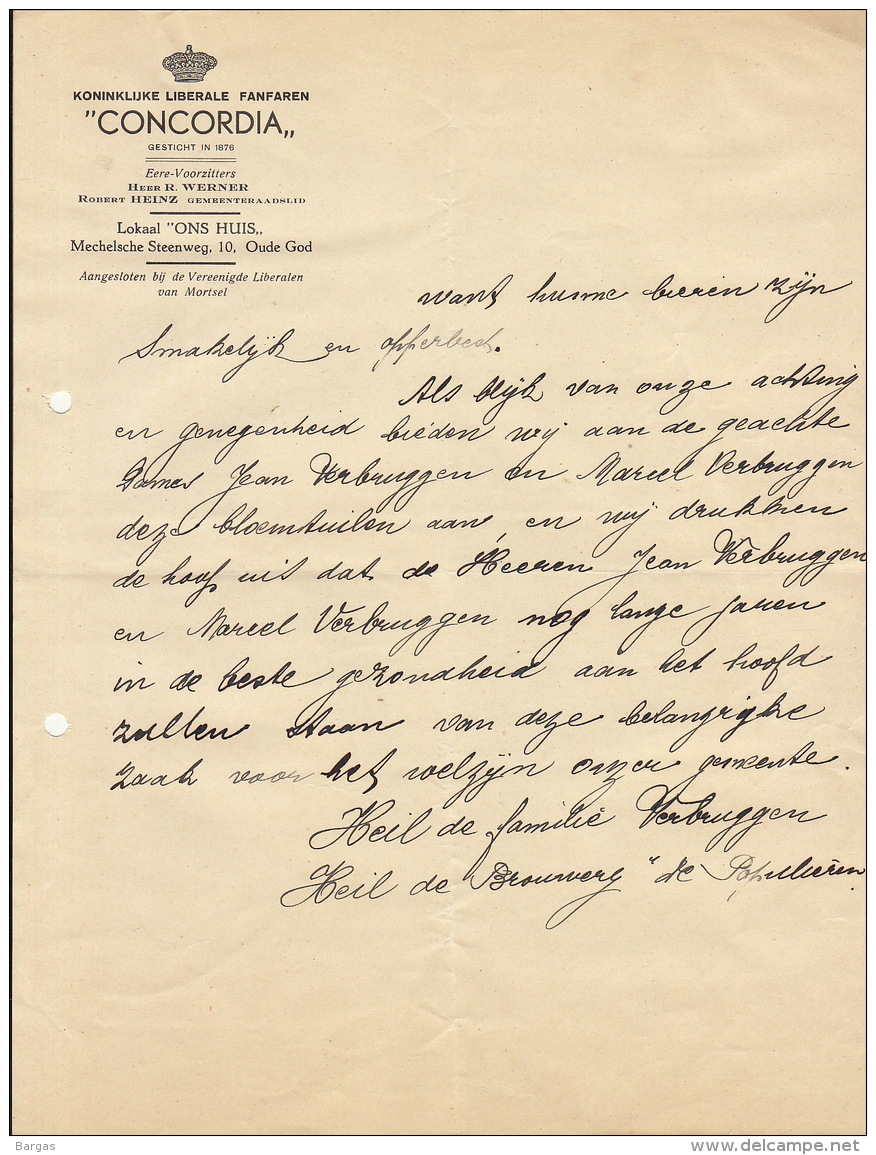 KONINKLIJKE LIBERALE FANFAREN
"CONCORDIA„
GESTICHT IN 1876
Eere-Voorzitters
HEER R. WERNER
ROBERT HEINZ GEMEENTERAADSLID
Lokaal "ONS HUIS„
Mechelsche Steenweg, 10, Oude God
Aangesloten bij de Vereenigde Liberalen
van Mortsel
want hunne bieren zijn
Smakelijk en opperbest.
Als blijk van onze achting
en genegenheid bieden wij aan de geachte
Dames Jean Verbruggen en Marcel Verbruggen
deze bloemtuilen aan, en wij drukken
de hoop uit dat de Heeren Jean Verbruggen
en Marcel Verbruggen nog lange jaren
in de beste gezondheid aan het hoofd
zullen staan van deze belangrijke
zaak voor het welzijn onzer gemeente.
Heil de familie Verbruggen
Heil de Brouwery "de Populieren
Bargas
www.delcampe.net